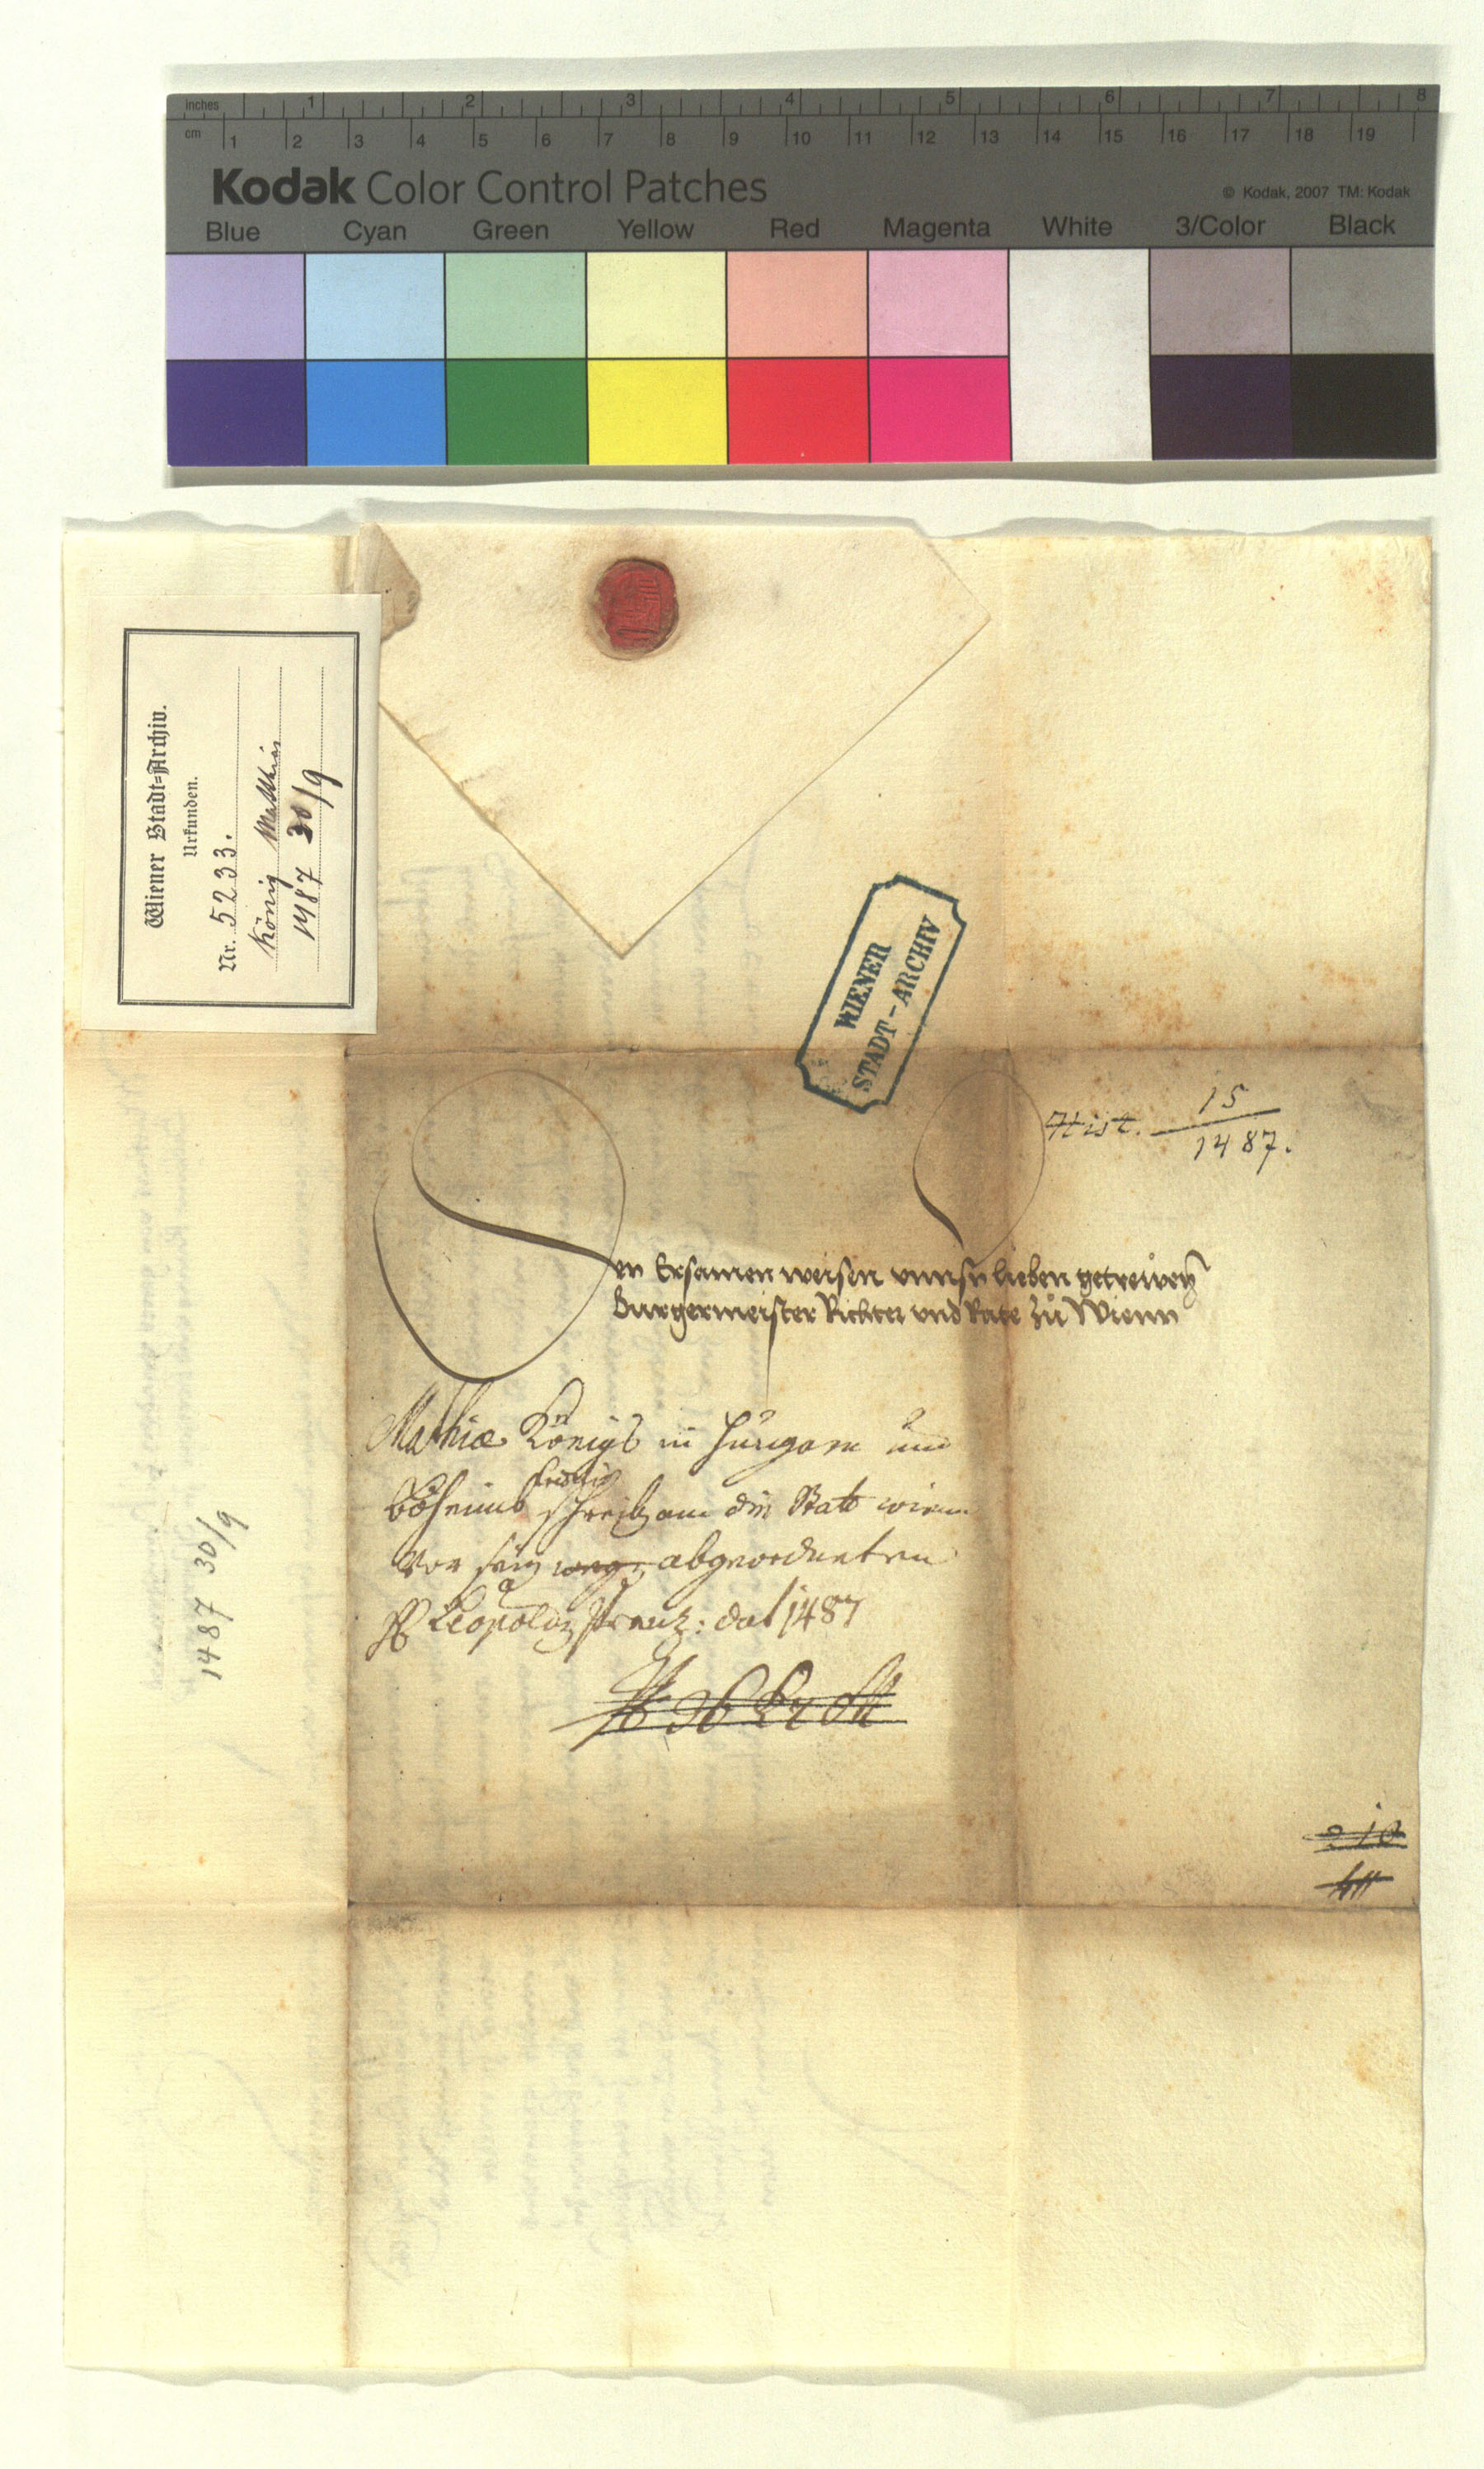 inches 1 2 3 4 5 6 7 8
cm 1 2 3 4 5 6 7 8 9 10 11 12 13 14 15 16 17 18 19
Kodak Color Control Patches
© Kodak, 2007 TM: Kodak
Blue Cyan Green Yellow Red Magenta White 3/Color Black
Wiener Stadt-Archiv.
Urkunden.
Nr. 5233.
König Matthias
1487 30/9
WIENER
STADT-ARCHIV
Hist. 15
1487.
Den Ersamen weisen vnnsern lieben getrewen
Burgermeister Richter vnd Rate zu Wienn
Mathiæ Königs in Hungarn und
Böheimb schreib an die Statt wienn
Vor sein abgeordneten
Leopoldn : dat 1487
1487 30/9